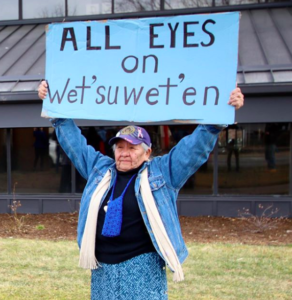 ALL EYES
on
Wet'suwet'en